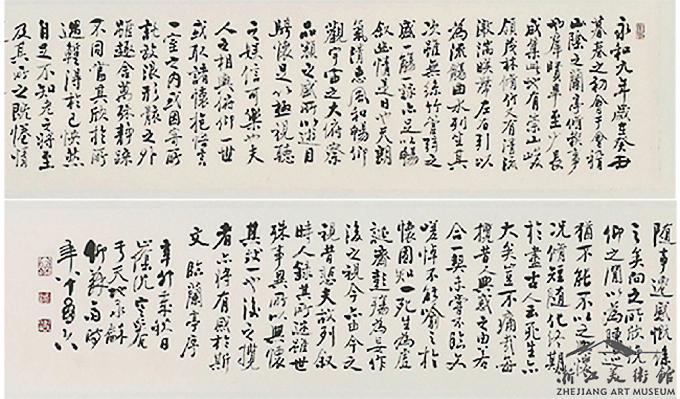 永和九年歲在癸丑
暮春之初會于會稽
山陰之蘭亭修禊事
也群賢畢至少長
咸集此地有崇山峻
領茂林修竹又有清流
激湍暎帶左右引以
為流觴曲水列坐其
次雖無絲竹管弦之
盛一觴一詠亦足以暢
敘幽情是日也天朗
氣清惠風和暢仰
觀宇宙之大俯察
品類之盛所以遊目
騁懷足以極視聽
之娛信可樂也夫
人之相與俯仰一世
或取諸懷抱悟言
一室之內或因寄所
託放浪形骸之外
雖趣舍萬殊靜躁
不同當其欣於所
遇暫得於己快然
自足不知老之將至
及其所之既惓情
隨事遷感慨係
之矣向之所欣俛
仰之間以為陳迹
猶不能不以之興懷
況修短隨化終期
於盡古人云死生亦
大矣豈不痛哉每
攬昔人興感之由若
合一契未嘗不臨文
嗟悼不能喻之於
懷固知一死生為虛
誕齊彭殤為妄作
後之視今亦由今之
視昔悲夫故列敘
時人錄其所述雖世
殊事異所以興懷
其致一也後之攬
者亦將有感於斯
文 臨蘭亭序
辛卯 秋日
浙江美術館
ZHEJIANG ART MUSEUM